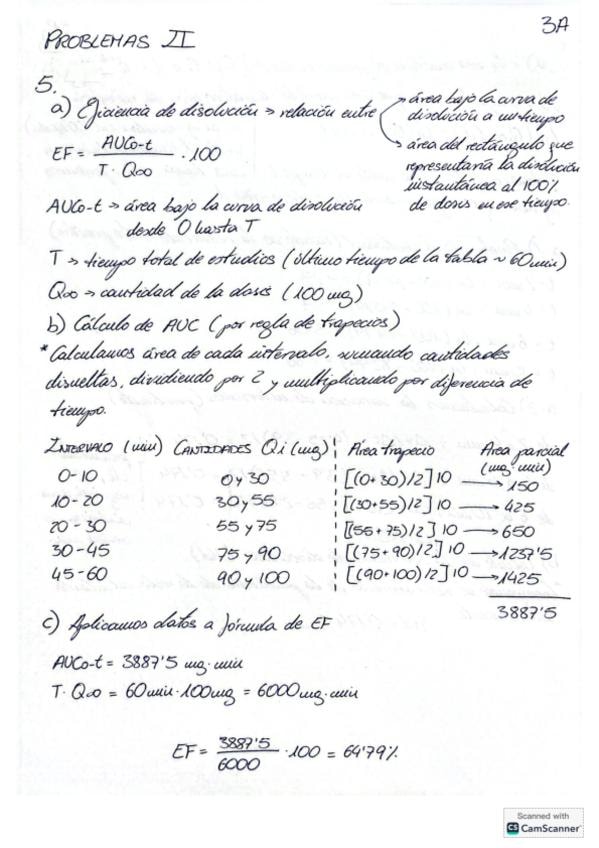 3A
PROBLEMAS II
5.
a) Eficiencia de disolución → relación entre
→ área bajo la curva de
disolución a un tiempo
→ área del rectángulo que
representaría la disolución
instantánea al 100%
de dosis en ese tiempo.
EF = AUCo-t / T · Q∞ · 100
AUCo-t → área bajo la curva de disolución
desde 0 hasta T
T → tiempo total de estudios (último tiempo de la tabla ~ 60 min)
Q∞ → cantidad de la dosis (100 mg)
b) Cálculo de AUC (por regla de trapecios)
* Calculamos área de cada intervalo, sumando cantidades
disueltas, dividiendo por 2 y multiplicando por diferencia de
tiempo.
INTERVALO (min) CANTIDADES Qi (mg) Área trapecio Área parcial
(mg·min)
0-10 0 y 30 [(0+30)/2] 10 → 150
10-20 30 y 55 [(30+55)/2] 10 → 425
20-30 55 y 75 [(55+75)/2] 10 → 650
30-45 75 y 90 [(75+90)/2] 10 → 1237'5
45-60 90 y 100 [(90+100)/2] 10 → 1425
3887'5
c) Aplicamos datos a fórmula de EF
AUCo-t = 3887'5 mg·min
T · Q∞ = 60 min · 100 mg = 6000 mg·min
EF = 3887'5 / 6000 · 100 = 64'79%
Scanned with
CS CamScanner